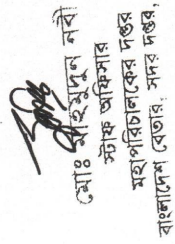 মোঃ মাহমুদুন নবী
স্টাফ অফিসার
মহাপরিচালকের দপ্তর
বাংলাদেশ বেতার, সদর দপ্তর,